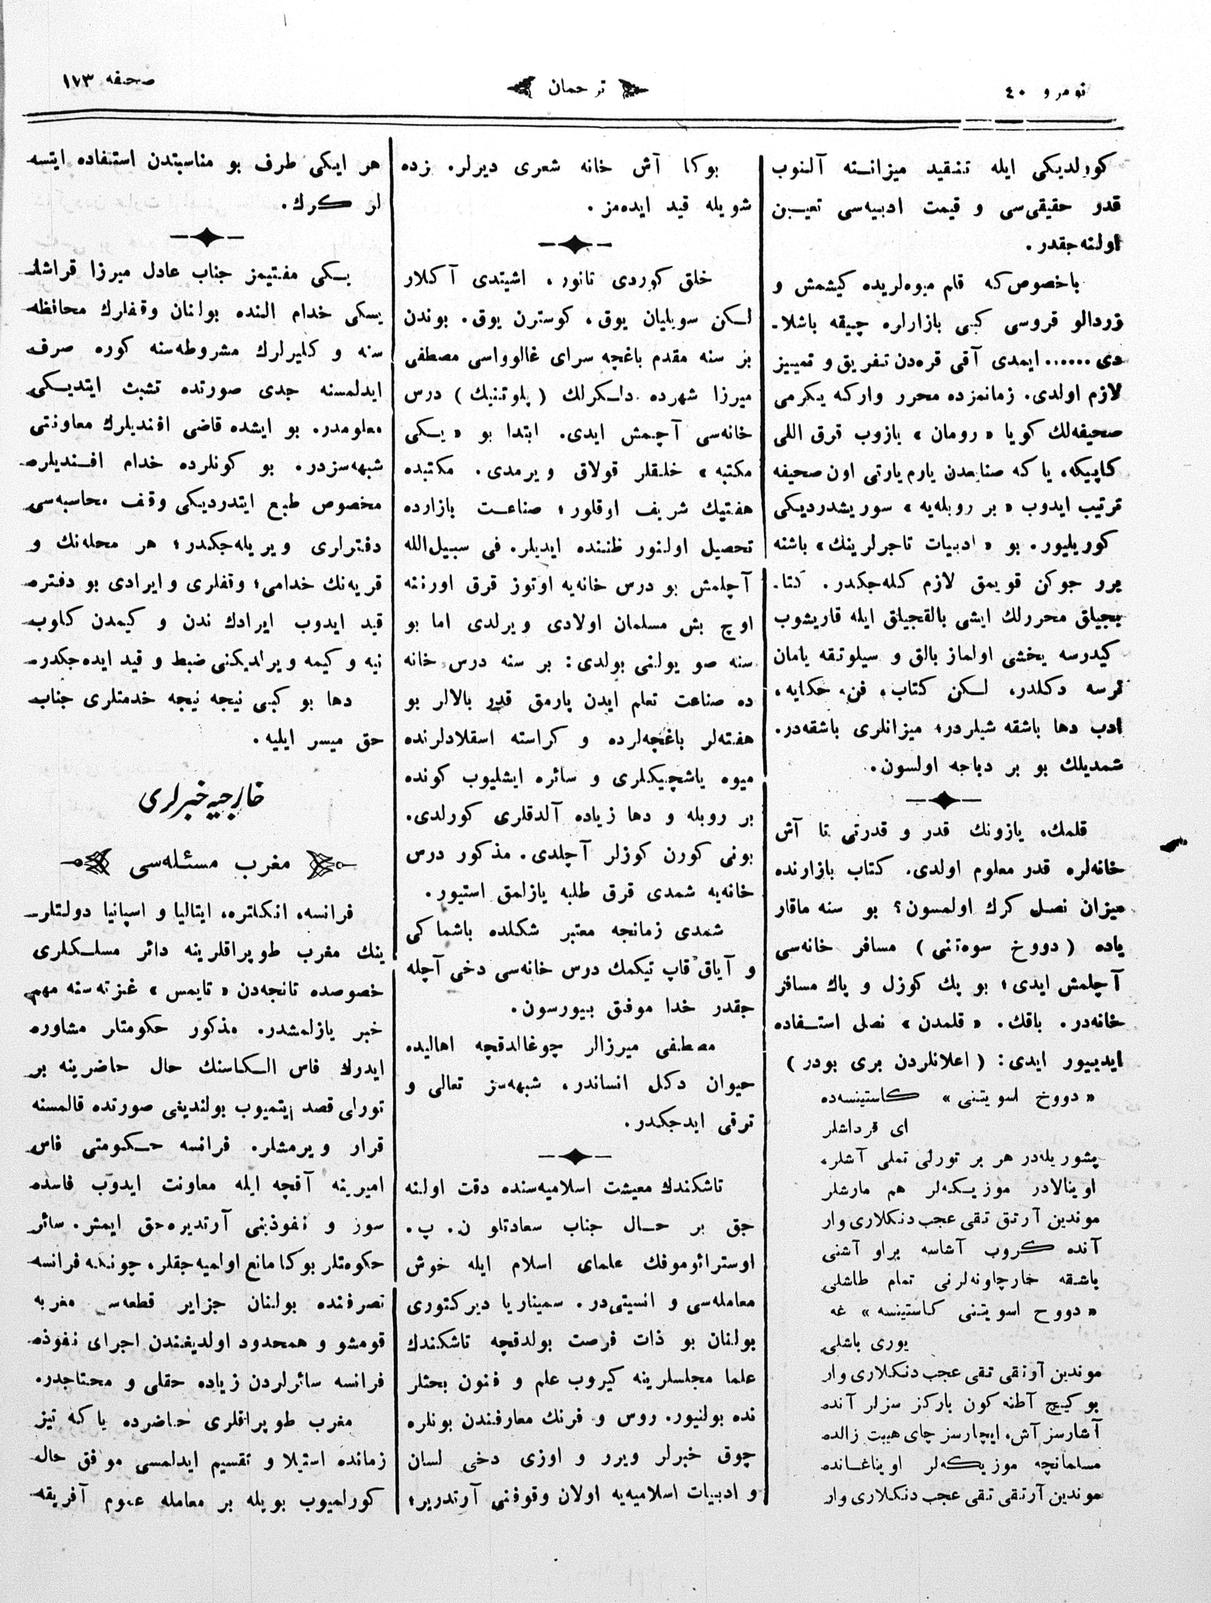 نومرو ٤٠
ترجمان
صحفه ١٧٣
كورلديكى ايله تنقيد ميزاننه آلنوب
قدر حقيقى‌سى و قيمت ادبيه‌سى تعيين
اولنه‌جقدر.
باخصوص‌كه قلم ميوه‌لريده كيشمش و
زردالو قروسى كبى بازارلره چيقه باشلا-
دى...... ايمدى آقى قره‌دن تفريق و تمييز
لازم اولدى. زمانمزده محرر واركه يكرمى
صحيفه‌لك كويا « رومان » يازوب قرق اللى
كاپيكه، ياكه صنايعدن يارم يارتى اون صحيفه
ترتيب ايدوب « بر روبله‌يه » سوريشدرديكى
كوريليور. بو « ادبيات تاجرلرينك» باشنه
برر جوكن قويمق لازم كله‌جكدر. كتا-
بجيلق محررلك ايشى بالقجيلق ايله قاريشوب
كيدرسه يخشى اولماز بالق و سيلوتقه يامان
نرسه دكلدر، لكن كتاب، فن، حكايه،
ادب دها باشقه شيلردر؛ ميزانلرى باشقه‌در.
شمديلك بو بر دباجه اولسون.
قلمك، يازونك قدر و قدرتى تا آش
خانه‌لره قدر معلوم اولدى. كتاب بازارنده
ميزان نصل كرك اولمسون؟ بو سنه ماقار
ياده ( دووخ سوه‌تنى ) مسافر خانه‌سى
آچلمش ايدى؛ بو پك كوزل و پاك مسافر
خانه‌در. باقك. « قلمدن » نصل استفاده
ايدييور ايدى: ( اعلانلردن برى بودر )
« دووخ اسويتنى » كاستينسه‌ده
اى قرداشلر
پشوريله‌در هر بر تورلى تملى آشلر،
اوينالادر موزيكه‌لر هم مارشلر
موندين آرتق تقى عجب دنكلارى وار
آنده كروب آشاسه براو آشنى
باشقه خارچاونه‌لرنى تمام طاشلى
« دووح اسويتنى كاستينسه » غه
يورى باشلى
موندين آوتقى تقى عجب دنكلارى وار
بو كيچ آطنه كون باركز سزلر آنده
آشارسز آش، ايچارسز چاى هيبت زالده
مسلمانچه موزيكه‌لر اويناغانده
موندين آرتقى تقى عجب دنكلارى وار
بوكا آش خانه شعرى ديرلر. زده
شويله قيد ايده‌مز.
خلق كوردى تانور، اشيتدى آكلار
لكن سويليان يوق، كوسترن يوق. بوندن
بر سنه مقدم باغچه سراى غالوواسى مصطفى
ميرزا شهرده دلكرلك ( پلوتنيك ) درس
خانه‌سى آچمش ايدى. ابتدا بو « يكى
مكتبه » خلقلر قولاق ويرمدى. مكتبده
هفتيك شريف اوقلور؛ صناعت بازارده
تحصيل اولنور ظننده ايديلر. فى سبيل‌الله
آچلمش بو درس خانه‌يه اوتوز قرق اورننه
اوچ بش مسلمان اولادى ويرلدى اما بو
سنه صو يولنى بولدى: بر سنه درس خانه
ده صناعت تعلم ايدن پارمق قدر بالالر بو
هفته‌لر باغچه‌لرده و كراسته اسقلادلرنده
ميوه ياشچيكلرى و سائره ايشليوب كونده
بر روبله و دها زياده آلدقلرى كورلدى.
بونى كورن كوزلر آچلدى. مذكور درس
خانه‌يه شمدى قرق طلبه يازلمق استيور.
شمدى زمانجه معتبر شكلده باشماكى
و آياق قاپ تيكمك درس خانه‌سى دخى آچله
جقدر خدا موفق بيورسون.
مصطفى ميرزالر چوغالدقچه اهاليده
حيوان دكل انساندر، شبهه‌سز تعالى و
ترقى ايدجكدر.
تاشكندك معيشت اسلاميه‌سنده دقت اولنه
جق بر حال جناب سعادتلو ن. پ.
اوسترائوموفك علماى اسلام ايله خوش
معامله‌سى و انسيتى‌در. سمينا ريا ديركتورى
بولنان بو ذات فرصت بولدقچه تاشكندك
علما مجلسلرينه كيروب علم و فنون بحثلر
نده بولنيور. روس و فرنك معارفندن بونلره
چوق خبرلر ويرر و اوزى دخى لسان
و ادبيات اسلاميه‌يه اولان وقوفنى آرتدرير؛
هر ايكى طرف بو مناسبتدن استفاده ايتسه
لر كرك.
يكى مفتيمز جناب عادل ميرزا قراشلـ
يسكى خدام النده بولنان وقفلرك محافظه
سنه و كليرلرك مشروطه‌سنه كوره صرف
ايدلمسنه جدى صورتده تشبث ايتديكى
معلومدر. بو ايشده قاضى افنديلرك معاونتى
شبهه‌سزدر. بو كونلرده خدام افنديلره
مخصوص طبع ايتدرديكى وقف محاسبه‌سى
دفترلرى ويريله‌جكدر؛ هر محله‌نك و
قريه‌نك خدامى؛ وقفلرى و ايرادى بو دفتره
قيد ايدوب ايرادك ندن و كيمدن كلوب
نيه و كيمه ويرلديكنى ضبط و قيد ايده‌جكدر.
دها بو كبى نيجه نيجه خدمتلرى جناب
حق ميسر ايليه.
خارجيه خبرلرى
مغرب مسئله‌سى
فرانسه، انكلتره، ايتاليا و اسپانيا دولتلر-
ينك مغرب طوپراقلرينه دائر مسلكلرى
خصوصده تانجه‌دن « تايمس » غزته‌سنه مهم
خبر يازلمشدر. مذكور حكومتلر مشاوره
ايدرك فاس الكاسنك حال حاضرينه بر
تورلى قصد ايتميوب بولنديغى صورتده قالمسنه
قرار ويرمشلر. فرانسه حكومتى فاس
اميرينه آقچه ايله معاونت ايدوب فاسده
سوز و نفوذينى آرتديره‌جق ايمش. سائر
حكومتلر بوكا مانع اولميه‌جقلر، چونكه فرانسه
تصرفنده بولنان جزاير قطعه‌سى مغربه
قومشو و همحدود اولديغندن اجراى نفوذه
فرانسه سائرلردن زياده حقلى و محتاجدر.
مغرب طوپراقلرى حاضرده ياكه تيز
زمانده استيلا و تقسيم ايدلمسى موافق حاله
كورلميوب بويله بر معامله عموم آفريقه